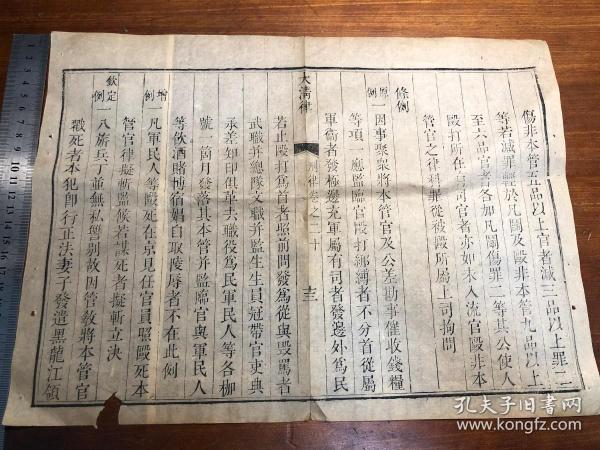 傷非本管五品以上官者減三品以上罪二
等若減罪輕於凡鬭及毆非本管九品以上
至六品官者各加凡鬭傷罪二等其公使人
毆打所在有司官者亦如未入流官毆非本
管官之律科罪從被毆所屬上司拘問
條例
原例
一因事聚衆將本管官及公差勘事催收錢糧
等項一應監臨官毆打綁縛者不分首從屬
軍衛者發極邊充軍屬有司者發邊外爲民
大清律
刑律卷之二十
十三
若止毆打爲首者照前問發爲從與毀罵者
武職并總隊文職并監生生員冠帶官吏典
承差知印俱革去職役爲民軍民人等各枷
號一箇月發落其本管并監臨官與軍民人
等飲酒賭博宿娼自取陵辱者不在此例
增例
一凡軍民人等毆死在京見任官員照毆死本
管官律擬斬監候若謀死者擬斬立決
欽定例
一八旂兵丁並無私讐別故因管敎將本管官
戳死者本犯即行正法妻子發遣黑龍江領
孔夫子旧書网
www.kongfz.com